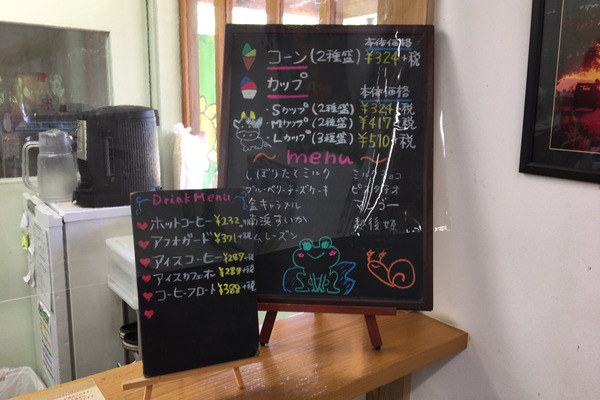 本体価格
コーン(2種盛) ¥324+税
カップ
本体価格
・Sカップ(2種盛) ¥324+税
・Mカップ(2種盛) ¥417+税
・Lカップ(3種盛) ¥510+税
～ menu ～
しぼりたてミルク
ブルーベリーチーズケーキ
塩キャラメル
南浜すいか
ラムレーズン
ミルクチョコ
ピスタチオ
越後姫
Drink Menu
ホットコーヒー ¥232+税
アフォガード ¥371+税
アイスコーヒー ¥289+税
アイスカフェオレ ¥289+税
コーヒーフロート ¥388+税